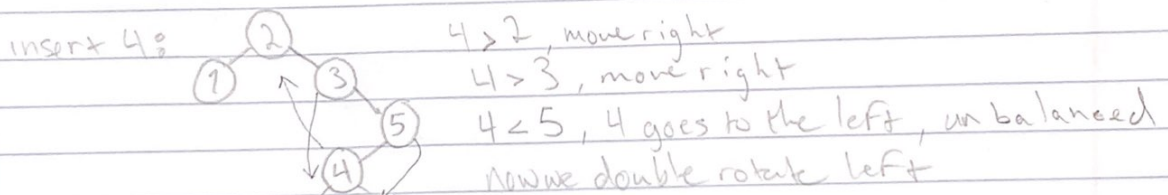 insert 4:
2
4 > 2, move right
1
3
4 > 3, move right
5
4 < 5, 4 goes to the left, unbalanced
4
now we double rotate left